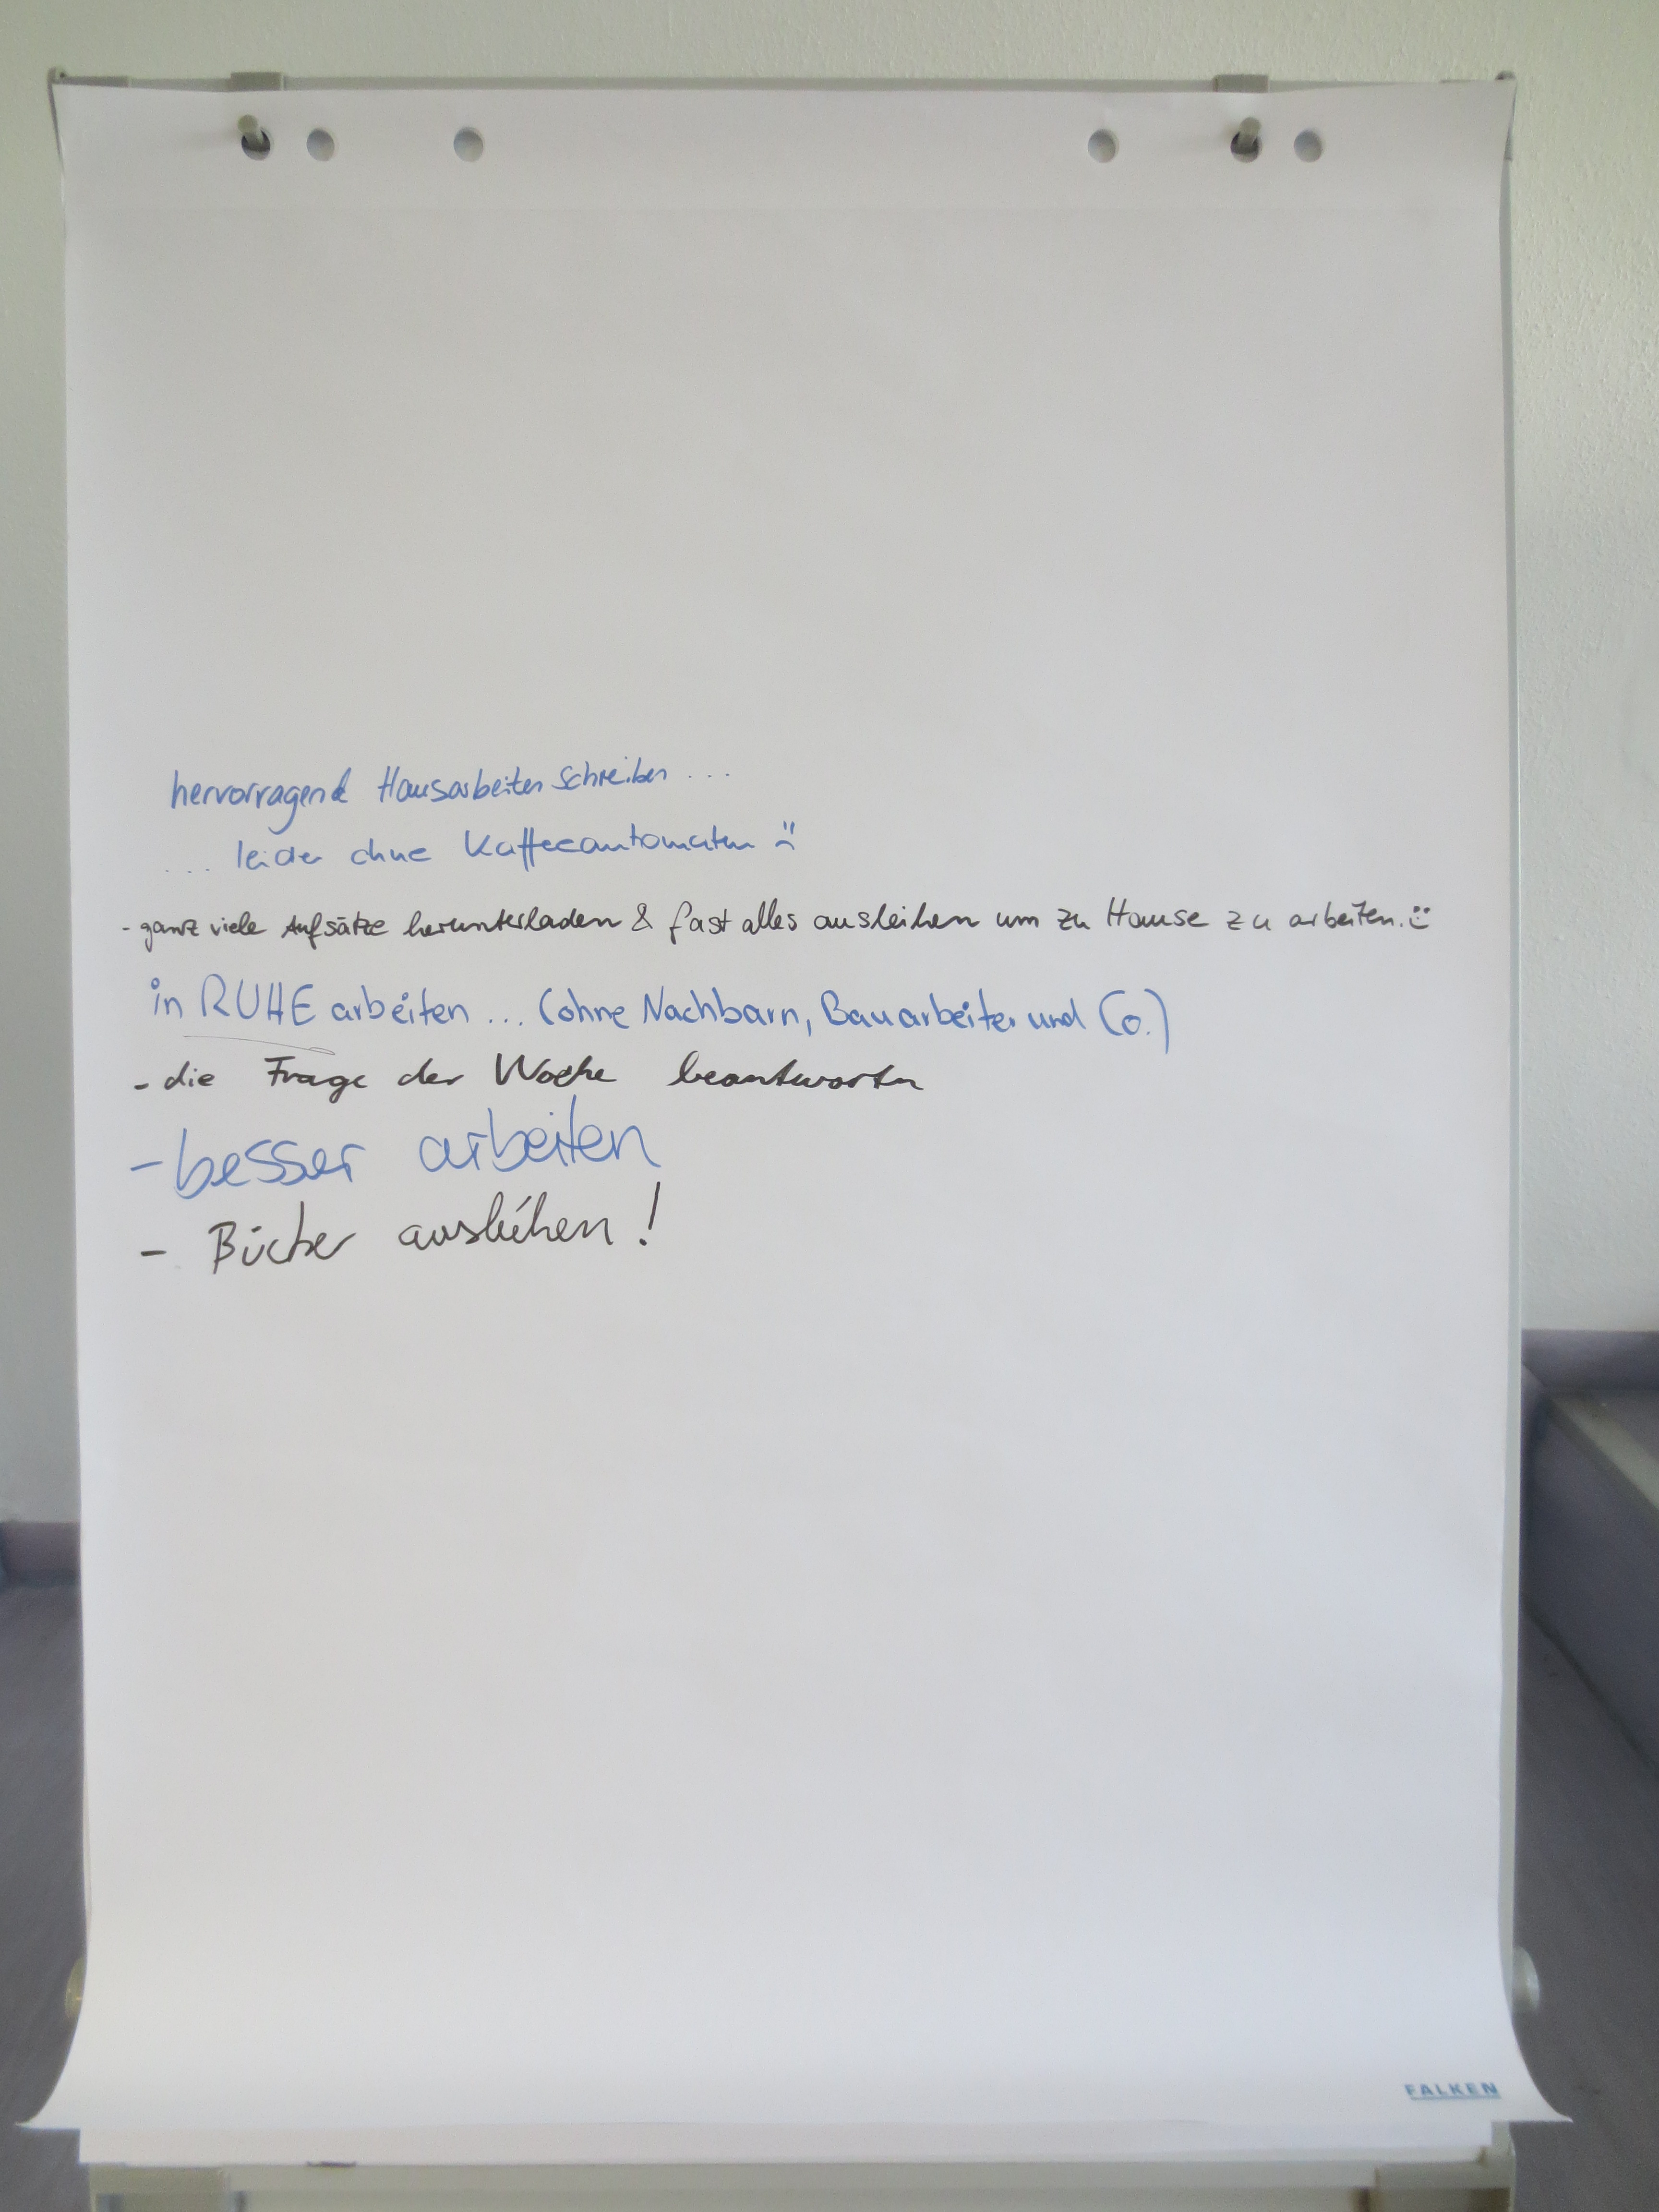 hervorragend Hausarbeiten schreiben ...
... leider ohne Kaffeeautomaten :(
- ganz viele Aufsätze herunterladen & fast alles ausleihen um zu Hause zu arbeiten. :)
in RUHE arbeiten ... (ohne Nachbarn, Bauarbeiter und Co.)
- die Frage der Woche beantworten
- besser arbeiten
- Bücher ausleihen!
FALKEN